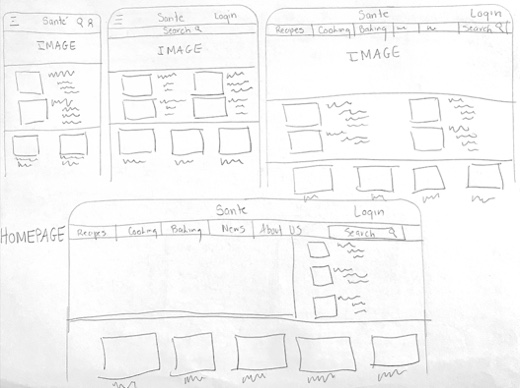 Santé
IMAGE
Santé Login
Search
IMAGE
Santé Login
Recipes Cooking Baking Search
IMAGE
HOMEPAGE
Santé Login
Recipes Cooking Baking News About US Search